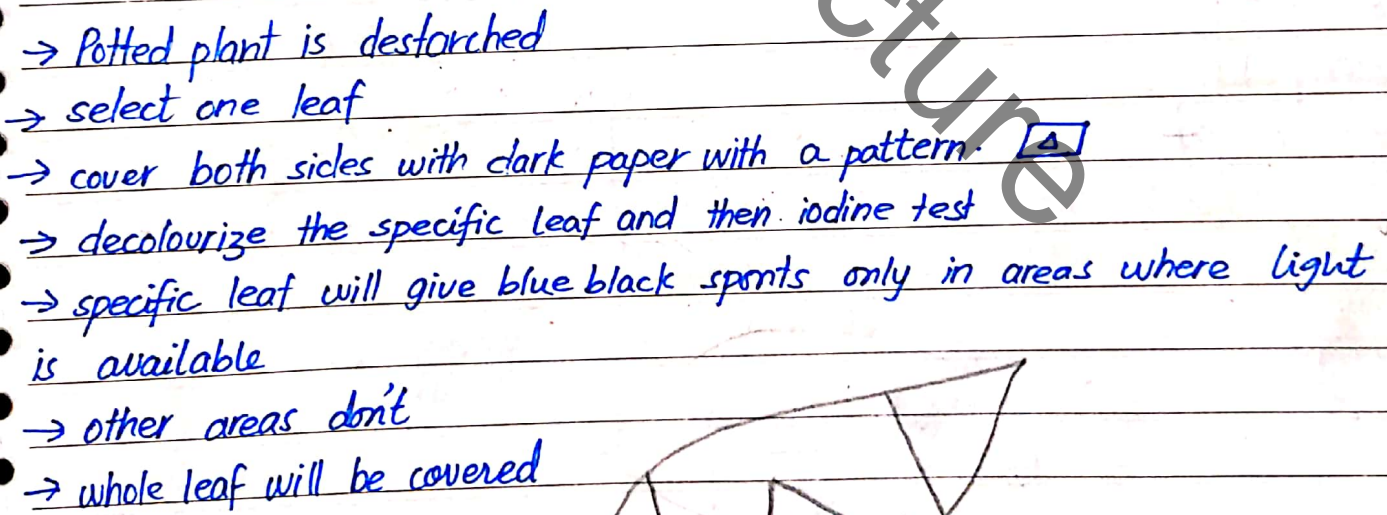 → Potted plant is destarched
→ select one leaf
→ cover both sides with dark paper with a pattern.
→ decolourize the specific leaf and then iodine test
→ specific leaf will give blue black sponts only in areas where light
is available
→ other areas don't
→ whole leaf will be covered